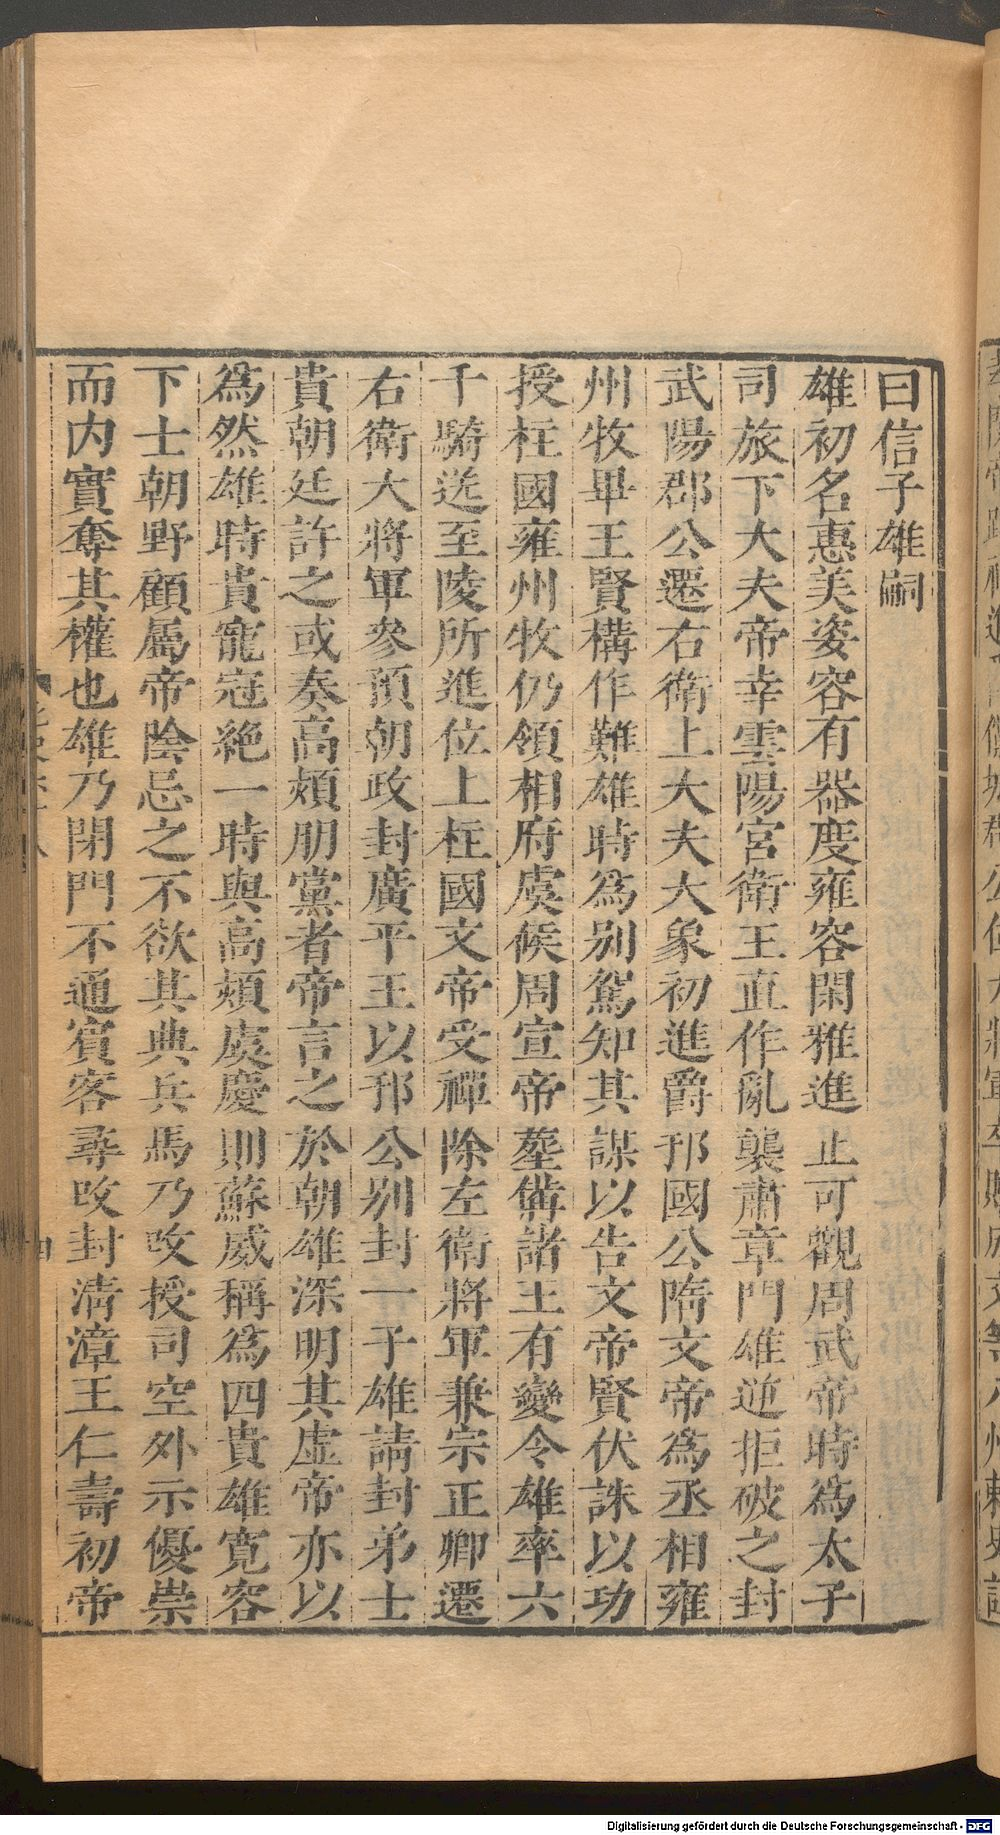 曰信子雄嗣
雄初名惠美姿容有器度雍容閑雅進止可觀周武帝時爲太子
司旅下大夫帝幸雲陽宮衛王直作亂襲肅章門雄逆拒破之封
武陽郡公遷右衛上大夫大象初進爵邗國公隋文帝爲丞相雍
州牧畢王賢構作難雄時爲別駕知其謀以告文帝賢伏誅以功
授柱國雍州牧仍領相府虞候周宣帝葬備諸王有變令雄率六
千騎送至陵所進位上柱國文帝受禪除左衛將軍兼宗正卿遷
右衛大將軍參預朝政封廣平王以邗公別封一子雄請封弟士
貴朝廷許之或奏高熲朋黨者帝言之於朝雄深明其虛帝亦以
爲然雄時貴寵冠絕一時與高熲虞慶則蘇威稱爲四貴雄寬容
下士朝野顧屬帝陰忌之不欲其典兵馬乃攺授司空外示優崇
而内實奪其權也雄乃閉門不通賓客尋攺封清漳王仁壽初帝
Digitalisierung gefördert durch die Deutsche Forschungsgemeinschaft - DFG